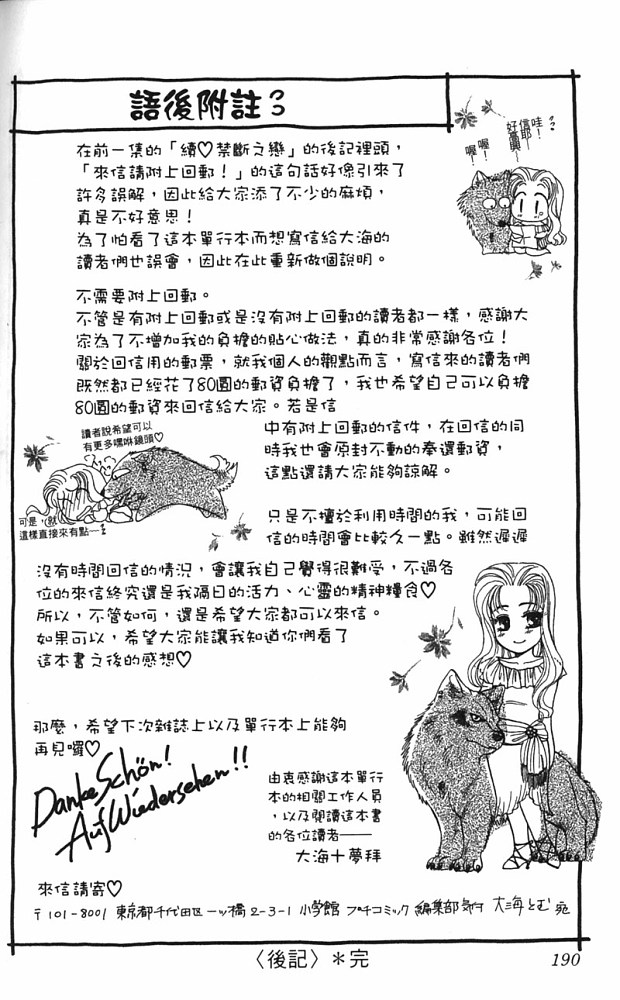 語後附註
哇!
信耶!
好高興!
喔!
喔!
在前一集的「續♡禁斷之戀」的後記裡頭，
「來信請附上回郵！」的這句話好像引來了
許多誤解，因此給大家添了不少的麻煩，
真是不好意思！
為了怕看了這本單行本而想寫信給大海的
讀者們也誤會，因此在此重新做個說明。
不需要附上回郵。
不管是有附上回郵或是沒有附上回郵的讀者都一樣，感謝大
家為了不增加我的負擔的貼心做法，真的非常感謝各位！
關於回信用的郵票，就我個人的觀點而言，寫信來的讀者們
既然都已經花了80圓的郵資負擔了，我也希望自己可以負擔
80圓的郵資來回信給大家。若是信
中有附上回郵的信件，在回信的同
時我也會原封不動的奉還郵資，
這點還請大家能夠諒解。
讀者說希望可以
有更多嘿咻鏡頭♡
可是，就
這樣直接來有點—
只是不擅於利用時間的我，可能回
信的時間會比較久一點。雖然遲遲
沒有時間回信的情況，會讓我自己覺得很難受，不過各
位的來信終究還是我隔日的活力、心靈的精神糧食♡
所以，不管如何，還是希望大家都可以來信。
如果可以，希望大家能讓我知道你們看了
這本書之後的感想♡
那麼，希望下次雜誌上以及單行本上能夠
再見囉♡
Danke Schön!
Auf Wiedersehen!!
由衷感謝這本單行
本的相關工作人員
，以及閱讀這本書
的各位讀者——
大海十夢拜
來信請寄♡
〒101-8001 東京都千代田区一ッ橋2-3-1 小学館 プチコミック 編集部気付 大海とむ 宛
〈後記〉＊完
190